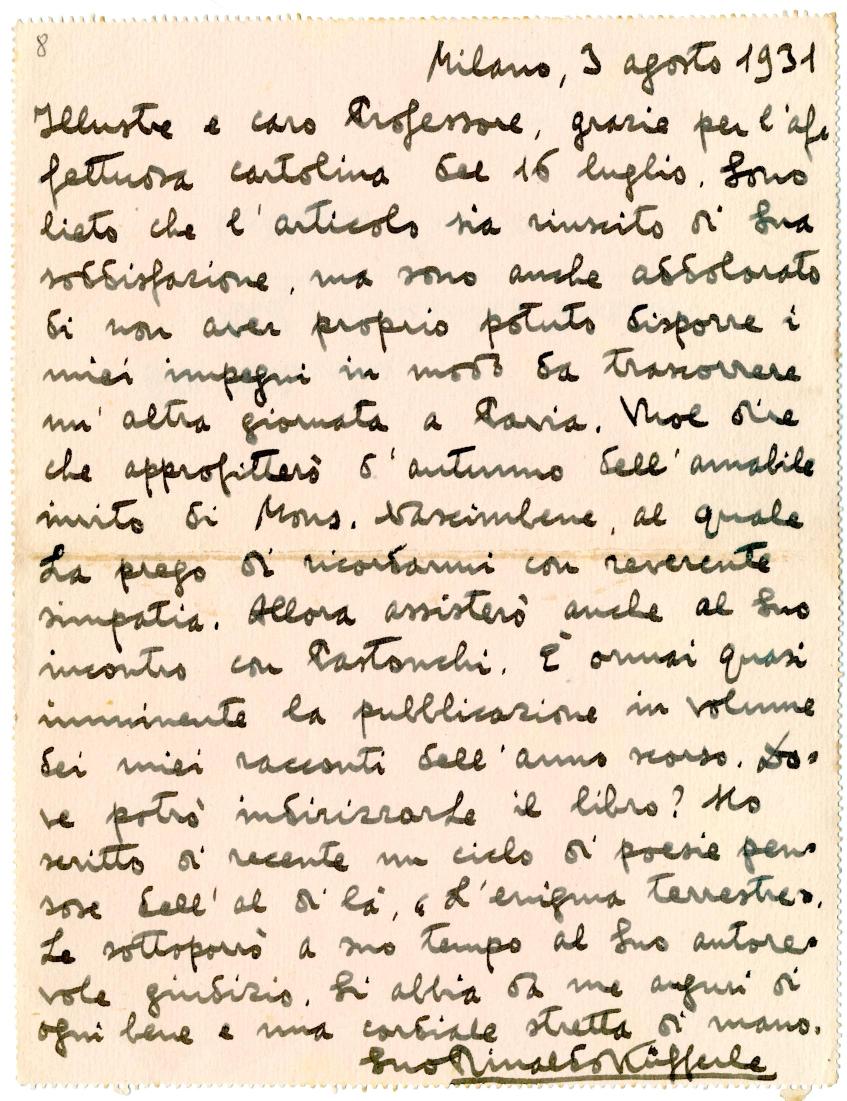 8
Milano, 3 agosto 1931
Illustre e caro Professore, grazie per l'af-
fettuosa cartolina del 16 luglio. Sono
lieto che l'articolo sia riuscito di Sua
soddisfazione, ma sono anche addolorato
di non aver proprio potuto disporre i
miei impegni in modo da trascorrere
un'altra giornata a Pavia. Vuol dire
che approfitterò d'autunno dell'amabile
invito di Mons. Nascimbene, al quale
La prego di ricordarmi con reverente
simpatia. Allora assisterò anche al Suo
incontro con Pastonchi. È ormai quasi
imminente la pubblicazione in volume
dei miei racconti dell'anno scorso. Do-
ve potrò indirizzarLe il libro? Ho
scritto di recente un ciclo di poesie pen-
sose dell'al di là, "L'enigma terrestre".
Le sottoporrò a suo tempo al Suo autore-
vole giudizio. Si abbia da me auguri di
ogni bene e una cordiale stretta di mano.
Suo Rinaldo Küfferle